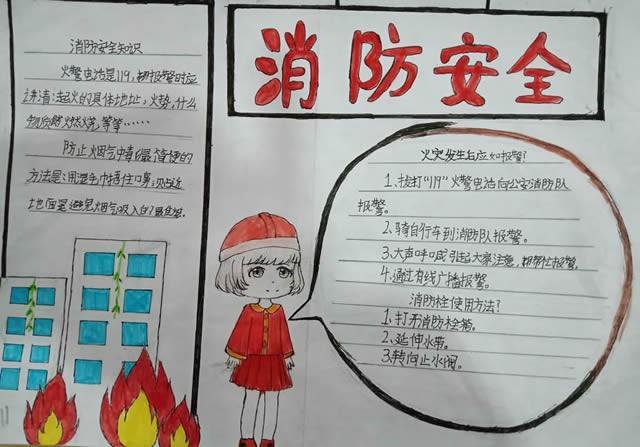 消防安全
消防安全知识
火警电话是119,报警时应
讲清:起火的具体地址,火势,什么
物质燃烧,等等……
防止烟气中毒最简便的
方法是:用湿毛巾捂住口鼻,
地面是避免烟气吸入的
火灾发生后应如报警?
1、拨打"119"火警电话向公安消防队
报警。
2.骑自行车到消防队报警。
3、大声呼喊引起大家注意,报警。
4.通过有线广播报警。
消防栓使用方法?
1.打开消防栓箱。
2、延伸水带。
3.转向止水阀。